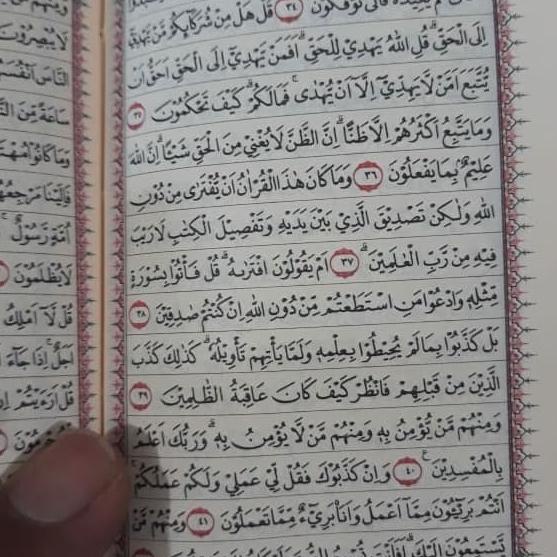 قُلْ هَلْ مِنْ شُرَكَآئِكُمْ مَّنْ يَّهْدِيْٓ ﴿٣٤﴾ تُؤْفَكُوْنَ
اِلَى الْحَقِّۗ قُلِ اللّٰهُ يَهْدِيْ لِلْحَقِّۗ اَفَمَنْ يَّهْدِيْٓ اِلَى الْحَقِّ اَحَقُّ اَنْ
يُّتَّبَعَ اَمَّنْ لَّا يَهِدِّيْٓ اِلَّآ اَنْ يُّهْدٰىۚ فَمَا لَكُمْۗ كَيْفَ تَحْكُمُوْنَ ﴿٣٥﴾
وَمَا يَتَّبِعُ اَكْثَرُهُمْ اِلَّا ظَنًّاۗ اِنَّ الظَّنَّ لَا يُغْنِيْ مِنَ الْحَقِّ شَيْـًٔاۗ اِنَّ اللّٰهَ
عَلِيْمٌۢ بِمَا يَفْعَلُوْنَ ﴿٣٦﴾ وَمَا كَانَ هٰذَا الْقُرْاٰنُ اَنْ يُّفْتَرٰى مِنْ دُوْنِ
اللّٰهِ وَلٰكِنْ تَصْدِيْقَ الَّذِيْ بَيْنَ يَدَيْهِ وَتَفْصِيْلَ الْكِتٰبِ لَا رَيْبَ
فِيْهِ مِنْ رَّبِّ الْعٰلَمِيْنَۗ ﴿٣٧﴾ اَمْ يَقُوْلُوْنَ افْتَرٰىهُۗ قُلْ فَأْتُوْا بِسُوْرَةٍ
مِّثْلِهٖ وَادْعُوْا مَنِ اسْتَطَعْتُمْ مِّنْ دُوْنِ اللّٰهِ اِنْ كُنْتُمْ صٰدِقِيْنَ ﴿٣٨﴾
بَلْ كَذَّبُوْا بِمَا لَمْ يُحِيْطُوْا بِعِلْمِهٖ وَلَمَّا يَأْتِهِمْ تَأْوِيْلُهٗۗ كَذٰلِكَ كَذَّبَ
الَّذِيْنَ مِنْ قَبْلِهِمْ فَانْظُرْ كَيْفَ كَانَ عَاقِبَةُ الظّٰلِمِيْنَ ﴿٣٩﴾
وَمِنْهُمْ مَّنْ يُّؤْمِنُ بِهٖ وَمِنْهُمْ مَّنْ لَّا يُؤْمِنُ بِهٖۗ وَرَبُّكَ اَعْلَمُ
بِالْمُفْسِدِيْنَ ﴿٤٠﴾ وَاِنْ كَذَّبُوْكَ فَقُلْ لِّيْ عَمَلِيْ وَلَكُمْ عَمَلُكُمْۚ
اَنْتُمْ بَرِيْۤـُٔوْنَ مِمَّآ اَعْمَلُ وَاَنَا۠ بَرِيْۤءٌ مِّمَّا تَعْمَلُوْنَ ﴿٤١﴾ وَمِنْهُمْ مَّنْ
يَّسْتَمِعُوْنَ اِلَيْكَۗ
لَا يُبْصِرُوْنَ
النَّاسَ اَنْفُسَهُمْ
سَاعَةً مِّنَ
وَمَا كَانُوْا مُهْتَدِيْنَ
فَاِلَيْنَا مَرْجِعُهُمْ
اُمَّةٍ رَّسُوْلٌ
لَا يُظْلَمُوْنَ
قُلْ لَّآ اَمْلِكُ
اَجَلٌۗ اِذَا جَاۤءَ
قُلْ اَرَءَيْتُمْ اِنْ